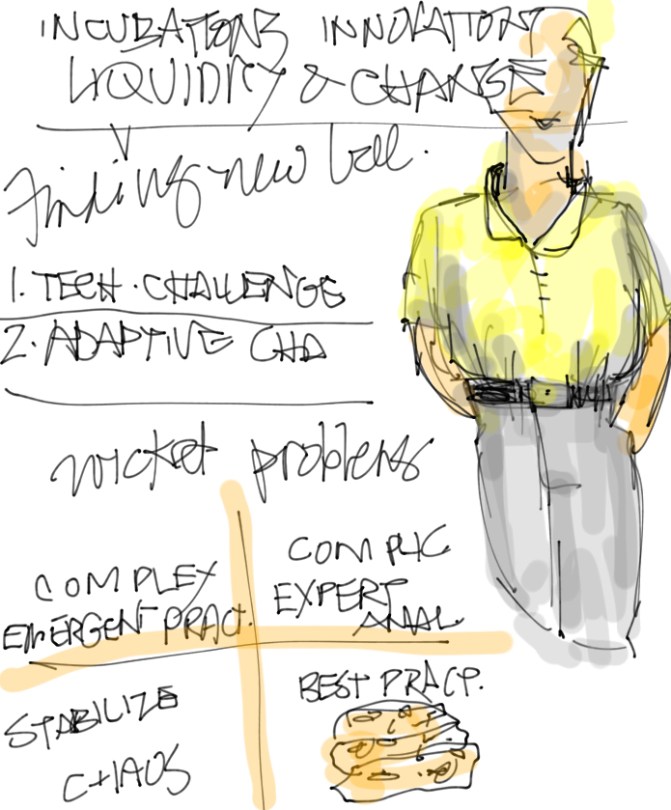 INCUBATIONS INNOVATION
LIQUIDITY & CHANGE
Finding new ball.
1. TECH. CHALLENGE
2. ADAPTIVE CHA
wicket problems
COMPLEX
EMERGENT PRACT.
COMPLIC
EXPERT
ANAL
STABILIZE
CHAOS
BEST PRACT.